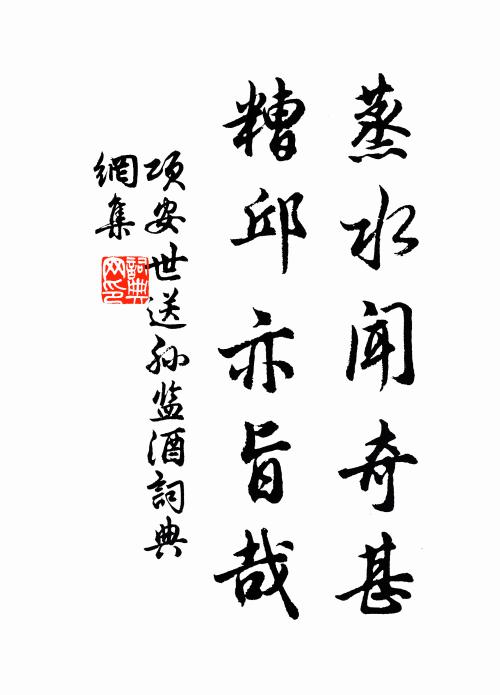 蒸水闻奇甚
糟邱亦旨哉
项安世送孙监酒詞典
網集
詞典网印